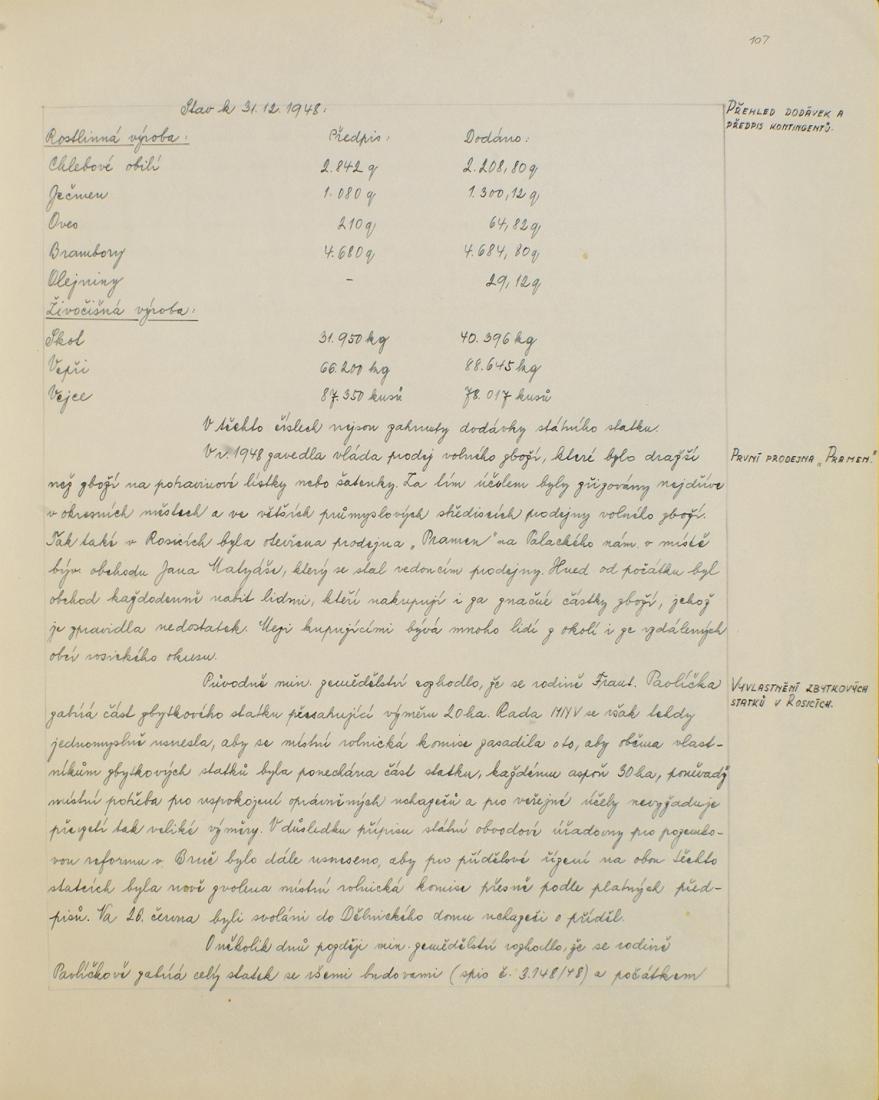 107
Stav k 31.12.1948:
PŘEHLED DODÁVEK A
PŘEDPIS KONTINGENTŮ.
Rostlinná výroba: Předpis: Dodáno:
Chlebové obilí 2.842 q 2.208,80 q
Ječmen 1.080 q 1.300,12 q
Oves 210 q 64,82 q
Brambory 4.680 q 4.684,80 q
Olejniny - 29,12 q
Živočišná výroba:
Skot 31.950 kg 40.396 kg
Vepři 66.200 kg 88.645 kg
Vejce 87.350 kusů 78.017 kusů
V těchto číslech nejsou zahrnuty dodávky státního statku.
V r. 1948 zavedla vláda prodej volného zboží, které bylo dražší
PRVNÍ PRODEJNA „PRAMEN."
než zboží na potravinové lístky nebo šatenky. Za tím účelem byly zřizovány nejdříve
v okresních městech a ve větších průmyslových střediscích prodejny volného zboží.
Tak také v Rosicích byla otevřena prodejna „Pramen" na Palackého nám. v místě
býv. obchodu Jana Matydáše, který se stal vedoucím prodejny. Hned od počátku byl
obchod každodenně nabit lidmi, kteří nakupují i za značné částky zboží, jehož
je zpravidla nedostatek. Mezi kupujícími bývá mnoho lidí z okolí i ze vzdálených
obcí rosického okresu.
Původně min. zemědělství rozhodlo, že se rodině Frant. Pavlíčka
VYVLASTNĚNÍ ZBYTKOVÝCH
STATKŮ V ROSICÍCH.
zabírá část zbytkového statku přesahující výměru 20 ha. Rada MNV se však tehdy
jednomyslně usnesla, aby se místní rolnická komise zasadila o to, aby oběma vlast-
níkům zbytkových statků byla ponechána část statku, každému aspoň 30 ha, poněvadž
místní potřeba pro uspokojení oprávněných uchazečů a pro veřejné účely nevyžaduje
převzetí tak veliké výměry. V důsledku přípisu státní obvodové úřadovny pro pozemko-
vou reformu v Brně bylo dále usneseno, aby pro přídělové řízení na obou těchto
statcích byla nově zvolena místní rolnická komise přesně podle platných před-
pisů. Na 26. června byli svoláni do Dělnického domu uchazeči o příděl.
O několik dnů později min. zemědělství rozhodlo, že se rodině
Pavlíčkově zabírá celý statek se všemi budovami (spis č. 3.148/48) a počátkem